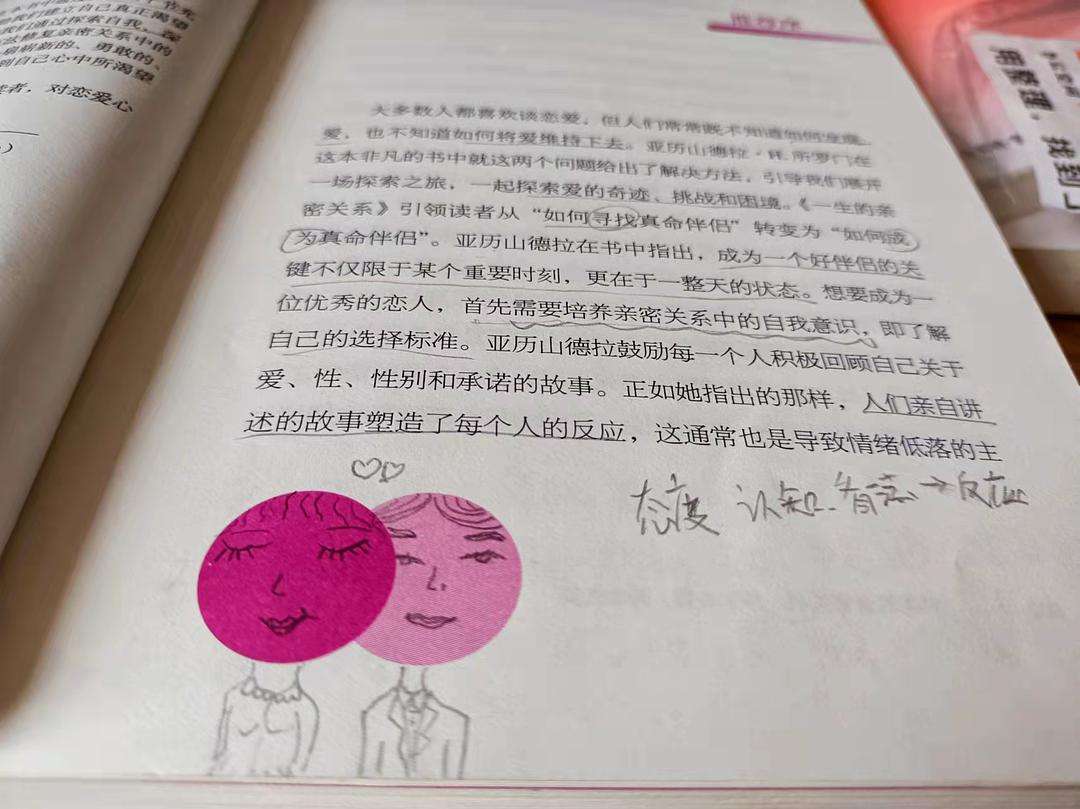 们建立自己真正渴望
们通过探索自我、探
修复亲密关系中的
崭新的、勇敢的、
到自己心中所渴望
者，对恋爱心
推荐序
大多数人都喜欢谈恋爱，但人们常常既不知道如何发现
爱，也不知道如何将爱维持下去。亚历山德拉·H.所罗门在
这本非凡的书中就这两个问题给出了解决方法，引导我们展开
一场探索之旅，一起探索爱的奇迹、挑战和困境。《一生的亲
密关系》引领读者从“如何寻找真命伴侣”转变为“如何成
为真命伴侣”。亚历山德拉在书中指出，成为一个好伴侣的关
键不仅限于某个重要时刻，更在于一整天的状态。想要成为一
位优秀的恋人，首先需要培养亲密关系中的自我意识，即了解
自己的选择标准。亚历山德拉鼓励每一个人积极回顾自己关于
爱、性、性别和承诺的故事。正如她指出的那样，人们亲自讲
述的故事塑造了每个人的反应，这通常也是导致情绪低落的主
态度 认知 →反应
找到